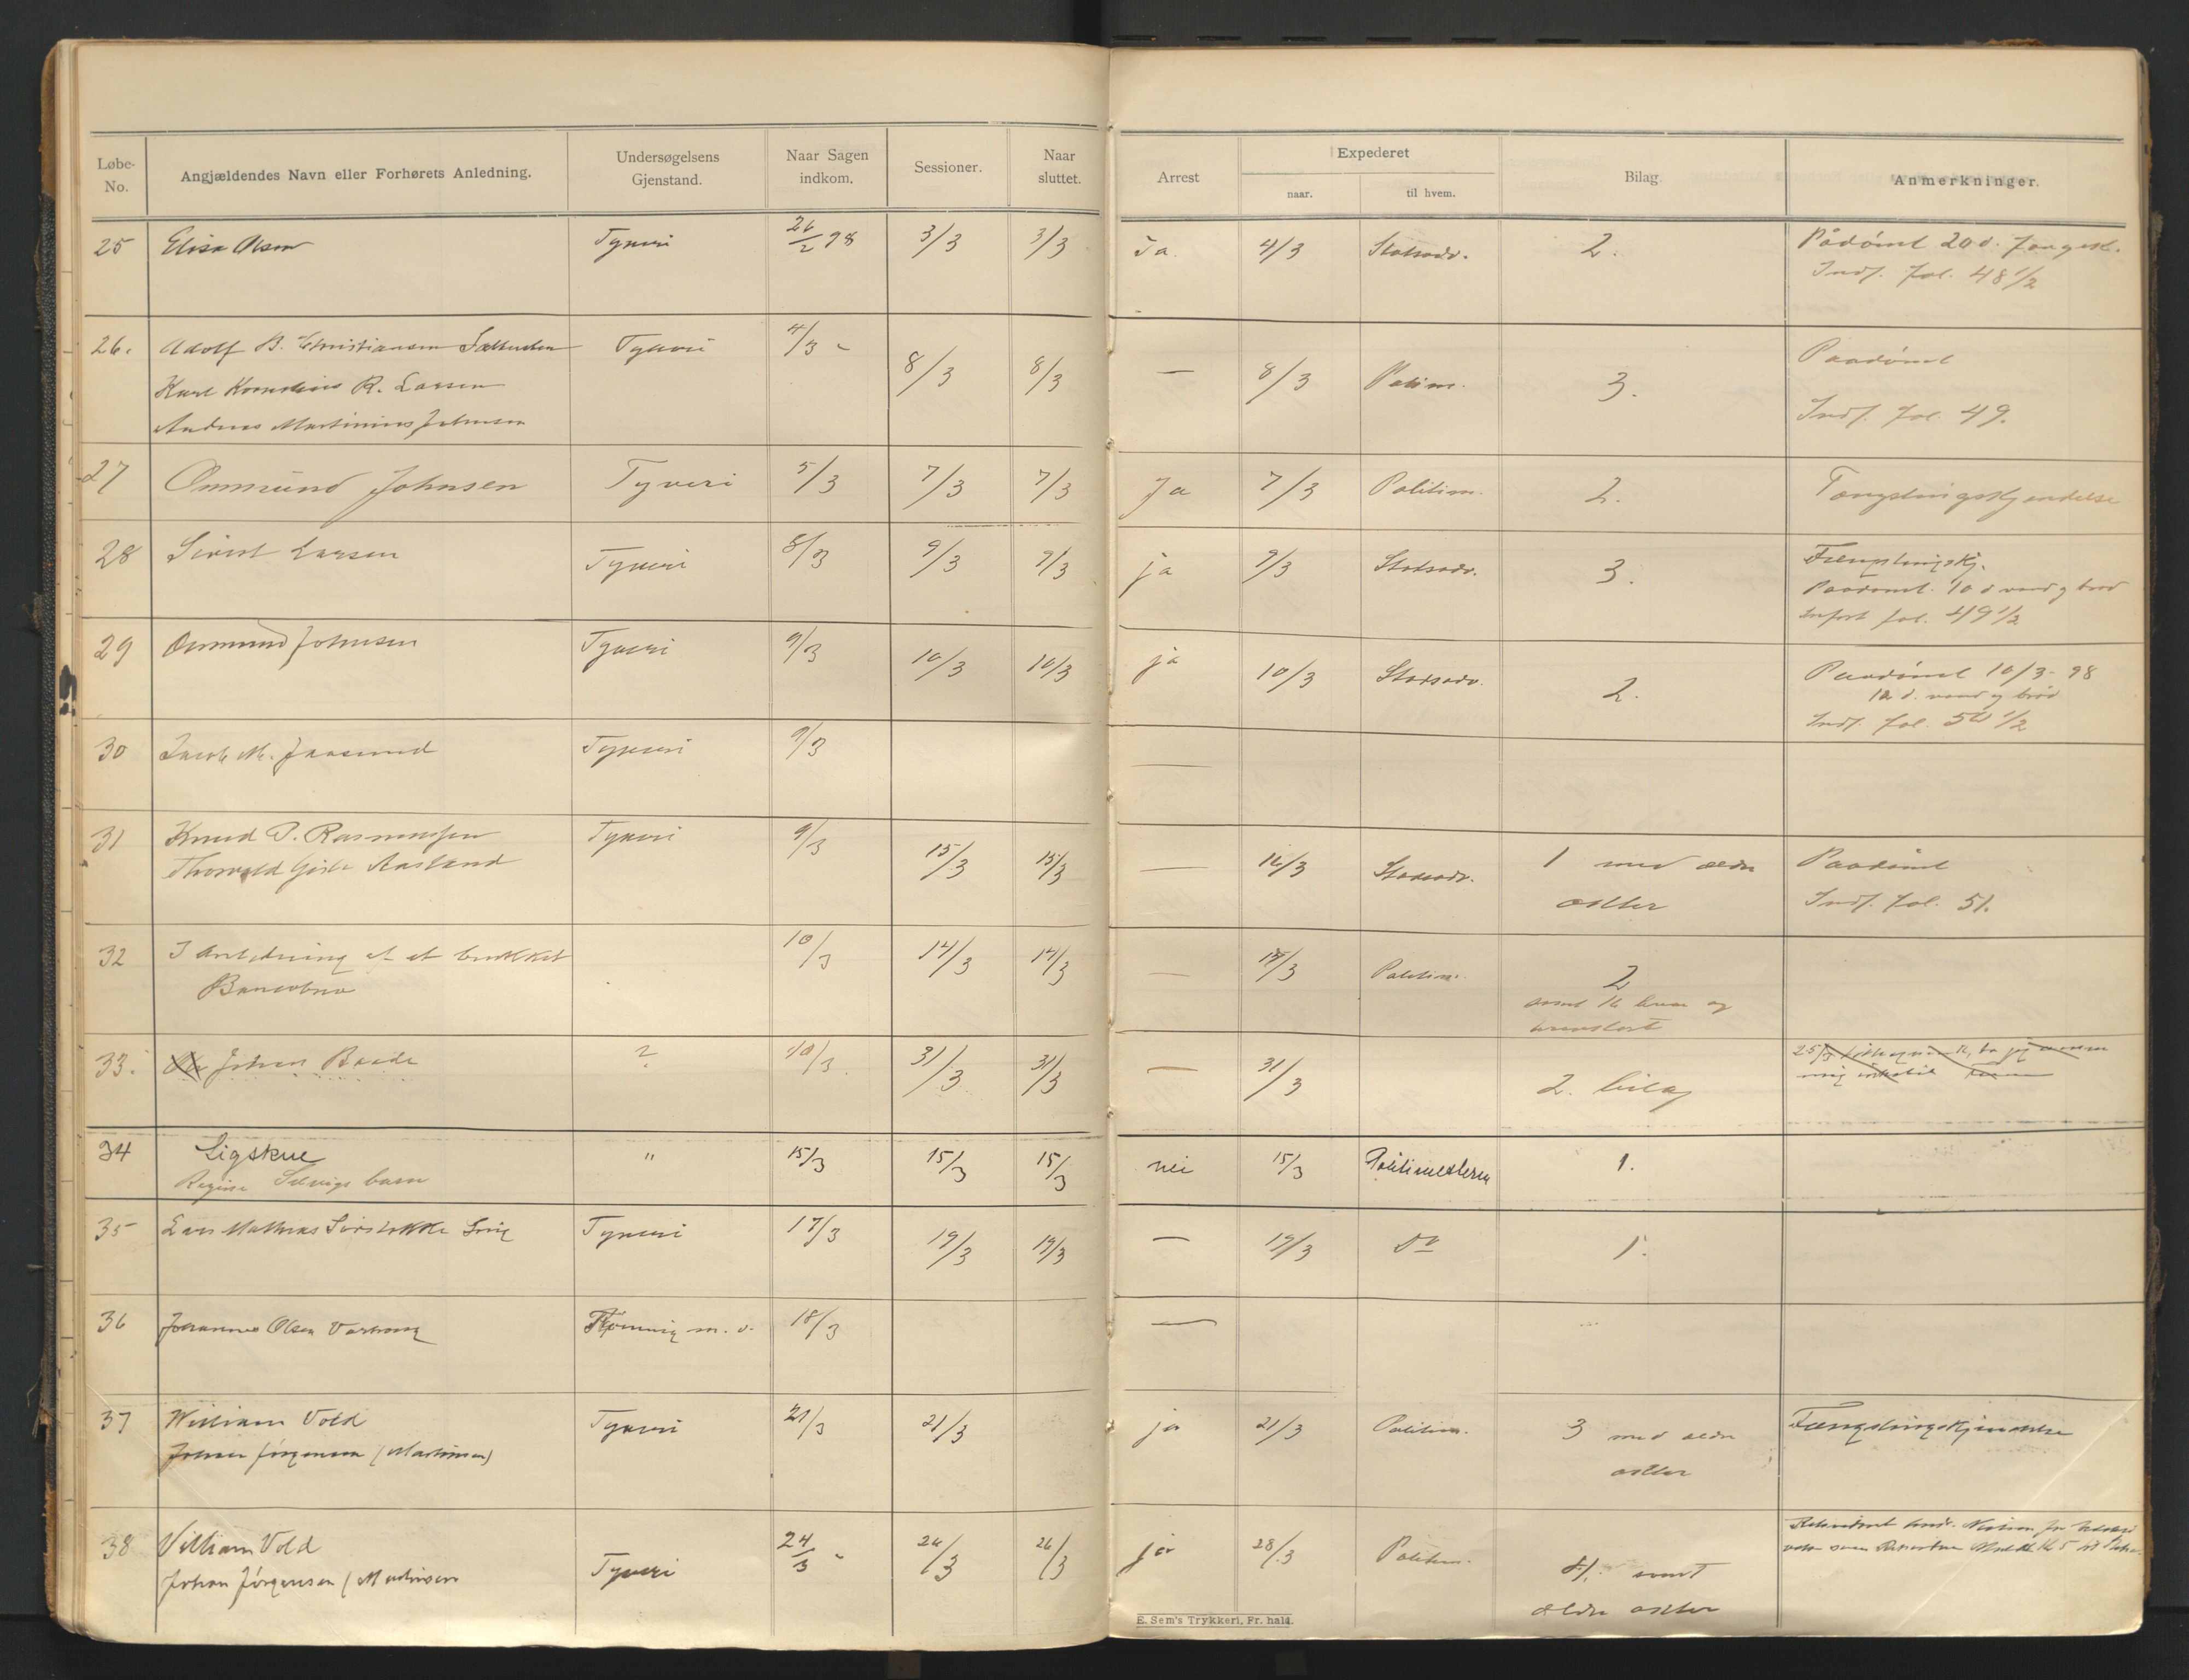 Løbe-No. Angjældendes Navn eller Forhørets Anledning. Undersøgelsens Gjenstand. Naar Sagen indkom. Sessioner. Naar sluttet. Arrest Expederet naar. til hvem. Bilag. Anmerkninger.
25 Elisa Olsen Tyveri 26/2 98 3/3 3/3 Ja 4/3 Statsadv. 2. Pådømt 20 d. fængsl.
Indf. fol. 48 1/2
26. Adolf B. Christiansen Tyveri 4/3 - 8/3 8/3 — 8/3 Politim. 3. Paadømt
Karl Kornelius R. Larsen
Andreas Martinius Johnsen Indf. fol. 49.
27 Ommund Johnsen Tyveri 5/3 7/3 7/3 Ja 7/3 Politim. 2. Fængslingskjendelse
28 Sivert Larsen Tyveri 8/3 9/3 9/3 ja 9/3 Statsadv. 3. Fængslingskj.
Paadømt. 10 d vand og brød
Indført fol. 49 1/2
29 Ommund Johnsen Tyveri 9/3 10/3 10/3 ja 10/3 Statsadv. 2. Paadømt 10/3 - 98
10 d. vand og brød
Indf. fol. 50 1/2
30 Jacob M. Jaasund Tyveri 9/3 —
31 Knud P. Rasmussen Tyveri 9/3 15/3 15/3 — 16/3 Statsadv. 1 med ældre Paadømt
Thorvald Aasland akter Indf. fol. 51.
32 I Anledning af et brukket 10/3 14/3 14/3 — 15/3 Politim. 2
samt og
33. Johan Baade ? 10/3 31/3 31/3 — 31/3 2. bilag
34 Ligskue " 15/3 15/3 15/3 nei 15/3 Politimesteren 1.
Regine barn
35 Lars Mathias Tyveri 17/3 19/3 19/3 — 19/3 Do 1.
36 Johannes Olsen m. v. 18/3 —
37 William Vold Tyveri 21/3 21/3 ja 21/3 Politim. 3 med ældre Fængslingskjendelse
Johan Jørgensen (Martinsen) akter
38 William Vold Tyveri 24/3 - 26/3 26/3 ja 28/3 Politim. 4. samt
Johan Jørgensen (Martinsen ældre akter
E. Sem's Trykkeri, Fr.hald.